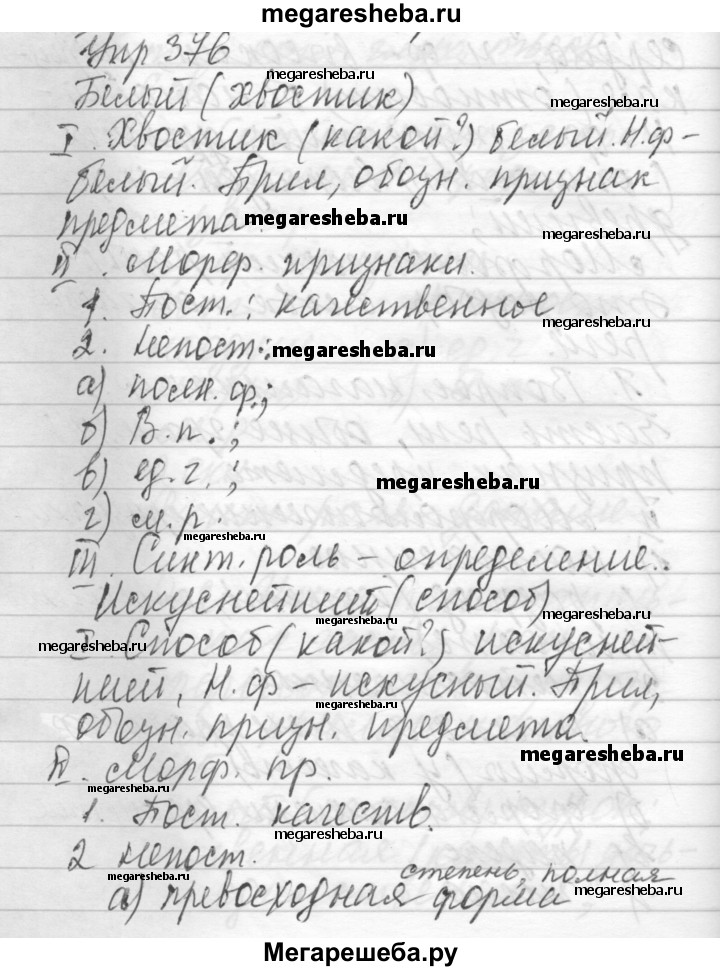 megaresheba.ru
Упр 376
megaresheba.ru
Белый (хвостик)
megaresheba.ru
I. Хвостик (какой?) белый. Н.ф -
megaresheba.ru
белый. Прил, обозн. признак
предмета.
megaresheba.ru
megaresheba.ru
II. Морф. признаки.
1. Пост.: качественное
megaresheba.ru
2. Непост.:
megaresheba.ru
а) полн. ф.;
б) В.п.;
в) ед.ч.;
megaresheba.ru
г) м.р.
megaresheba.ru
III. Синт. роль - определение.
Искуснейший (способ)
megaresheba.ru
megaresheba.ru
I. Способ (какой?) искусней-
megaresheba.ru
ший, Н.ф - искусный. Прил,
megaresheba.ru
обозн. призн. предмета.
megaresheba.ru
II. Морф. пр.
megaresheba.ru
1. Пост. качеств.
megaresheba.ru
2 Непост.
степень, полная
megaresheba.ru
а) превосходная форма
megaresheba.ru
Мегарешеба.ру